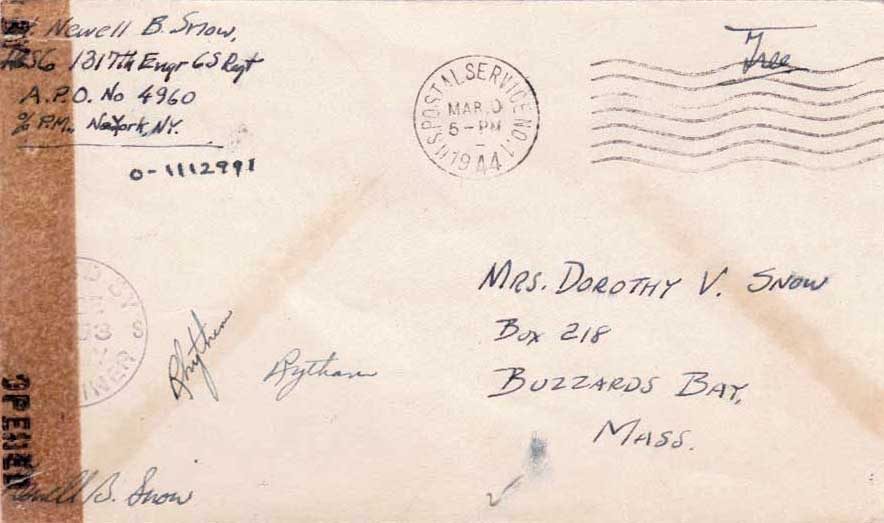 Newell B. Snow,
1317th Engr GS Regt
A.P.O. No 4960
c/o P.M., New York, N.Y.
O-1112991
U.S. POSTAL SERVICE NO. 1
MAR
5-PM
1944
Free
MRS. DOROTHY V. SNOW
BOX 218
BUZZARDS BAY,
MASS.
D BY
S
INER
Rhythem
Rytham
OPENED
B. Snow